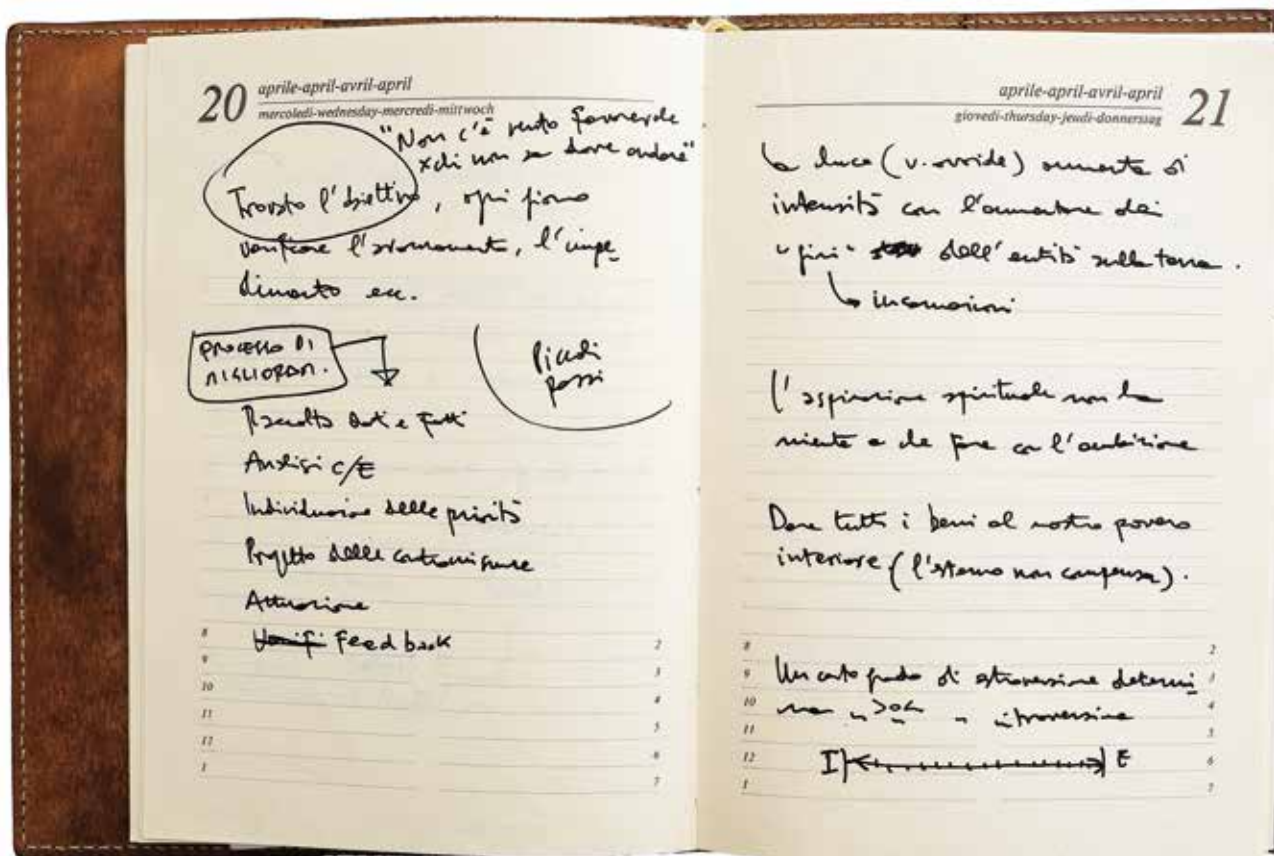 20
aprile-april-avril-april
mercoledì-wednesday-mercredi-mittwoch
"Non c'è vento favorevole
x chi non sa dove andare"
Trovato l'obiettivo, ogni giorno
verificare l'avanzamento, l'impe
dimento ecc.
PROCESSO DI
MIGLIORAM.
Piccoli
passi
Raccolta dati e fatti
Analisi C/E
Individuazione delle priorità
Progetto delle contromisure
Attuazione
Verifi Feedback
8 2
9 3
10 4
11 5
12 6
1 7
aprile-april-avril-april
giovedì-thursday-jeudi-donnerstag
21
La luce (v. ) aumenta di
intensità con l'aumentare dei
"giri" dell'entità sulla terra.
incarnazioni
L'aspirazione spirituale non ha
niente a che fare con l'ambizione
Dare tutti i beni al nostro povero
interiore (l'esterno non compensa).
8 2
9 Un certo grado di estroversione determi 3
10 na introversione 4
11 5
12 I E 6
1 7